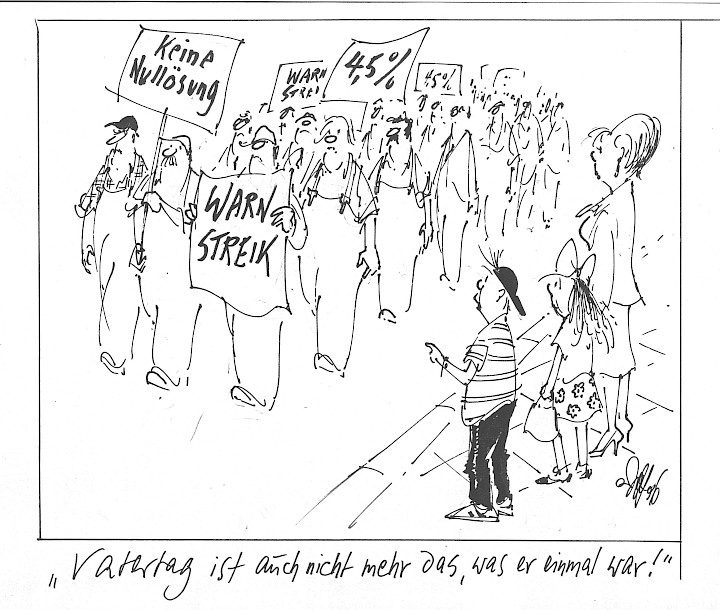 Keine
Nullösung
WARN
STREI
4,5%
4,5%
WARN
STREIK
"Vatertag ist auch nicht mehr das, was er einmal war!"